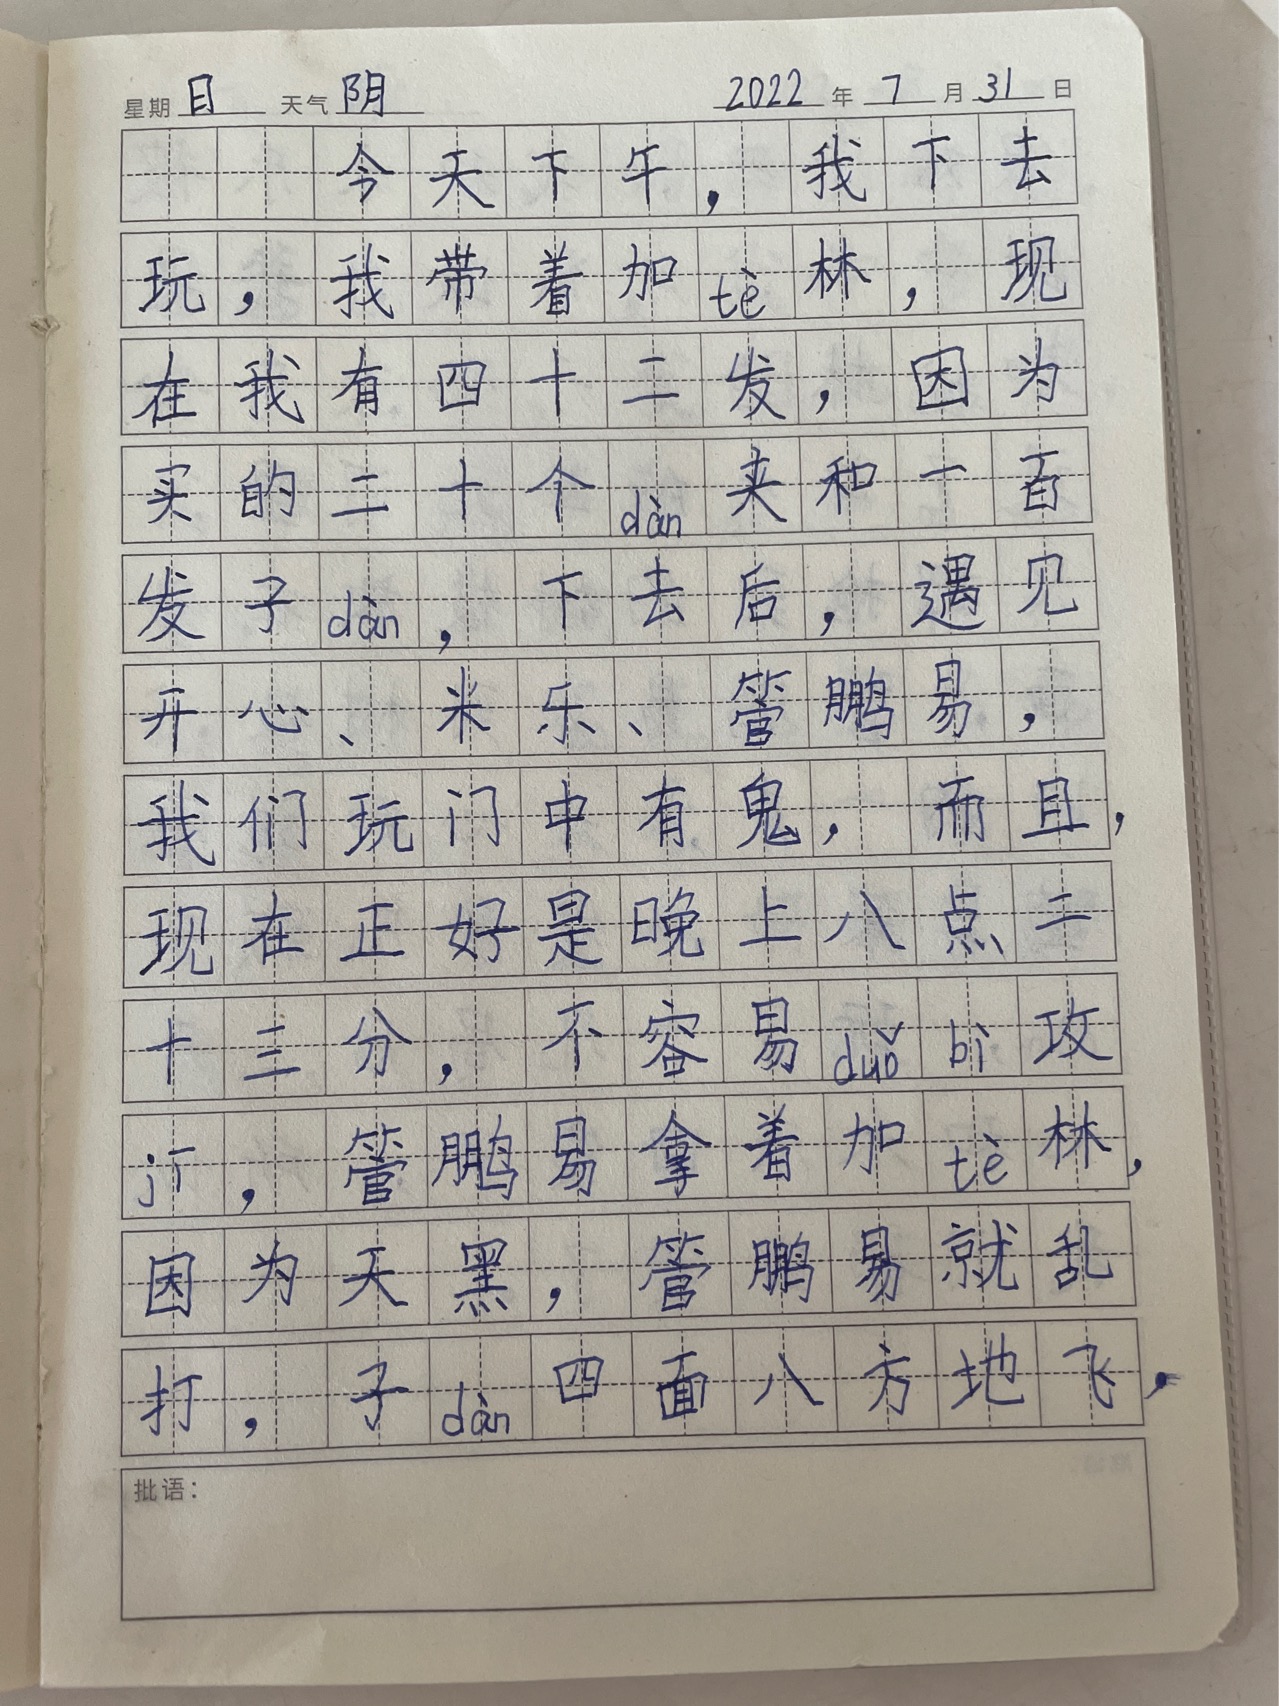 星期 日 天气 阴 2022 年 7 月 31 日
今天下午，我下去
玩，我带着加tè林，现
在我有四十二发，因为
买的二十个dàn夹和一百
发子dàn，下去后，遇见
开心、米乐、管鹏易，
我们玩门中有鬼，而且，
现在正好是晚上八点二
十三分，不容易duǒ bì攻
jī，管鹏易拿着加tè林，
因为天黑，管鹏易就乱
打，子dàn四面八方地飞，
批语：